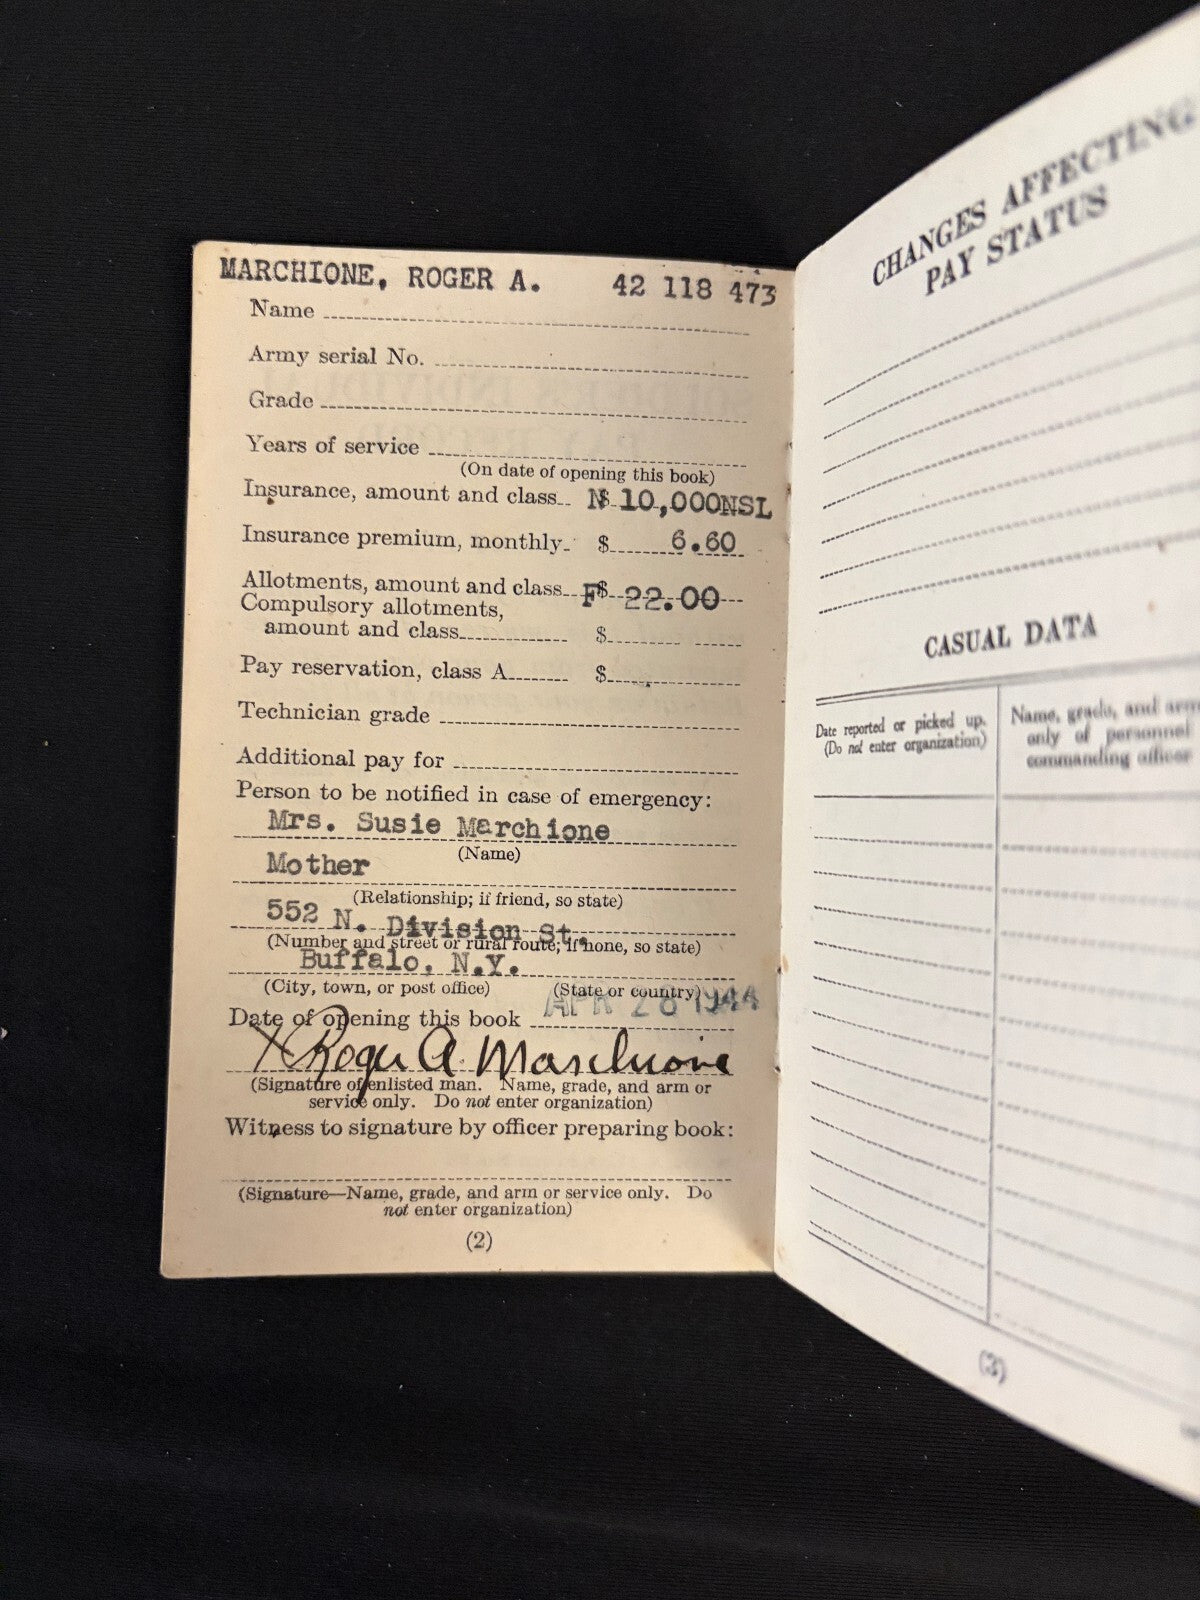 MARCHIONE, ROGER A. 42 118 473
Name
Army serial No.
Grade
Years of service
(On date of opening this book)
Insurance, amount and class N$ 10,000NSL
Insurance premium, monthly $ 6.60
Allotments, amount and class F$ 22.00
Compulsory allotments,
amount and class $
Pay reservation, class A $
Technician grade
Additional pay for
Person to be notified in case of emergency:
Mrs. Susie Marchione
(Name)
Mother
(Relationship; if friend, so state)
552 N. Division St.
(Number and street or rural route; if none, so state)
Buffalo, N.Y.
(City, town, or post office) (State or country)
Date of opening this book APR 28 1944
X Roger A. Marchione
(Signature of enlisted man. Name, grade, and arm or
service only. Do not enter organization)
Witness to signature by officer preparing book:
(Signature—Name, grade, and arm or service only. Do
not enter organization)
(2)
CHANGES AFFECTING
PAY STATUS
CASUAL DATA
Date reported or picked up.
(Do not enter organization)
Name, grade, and arm
only of personnel
commanding officer
(3)